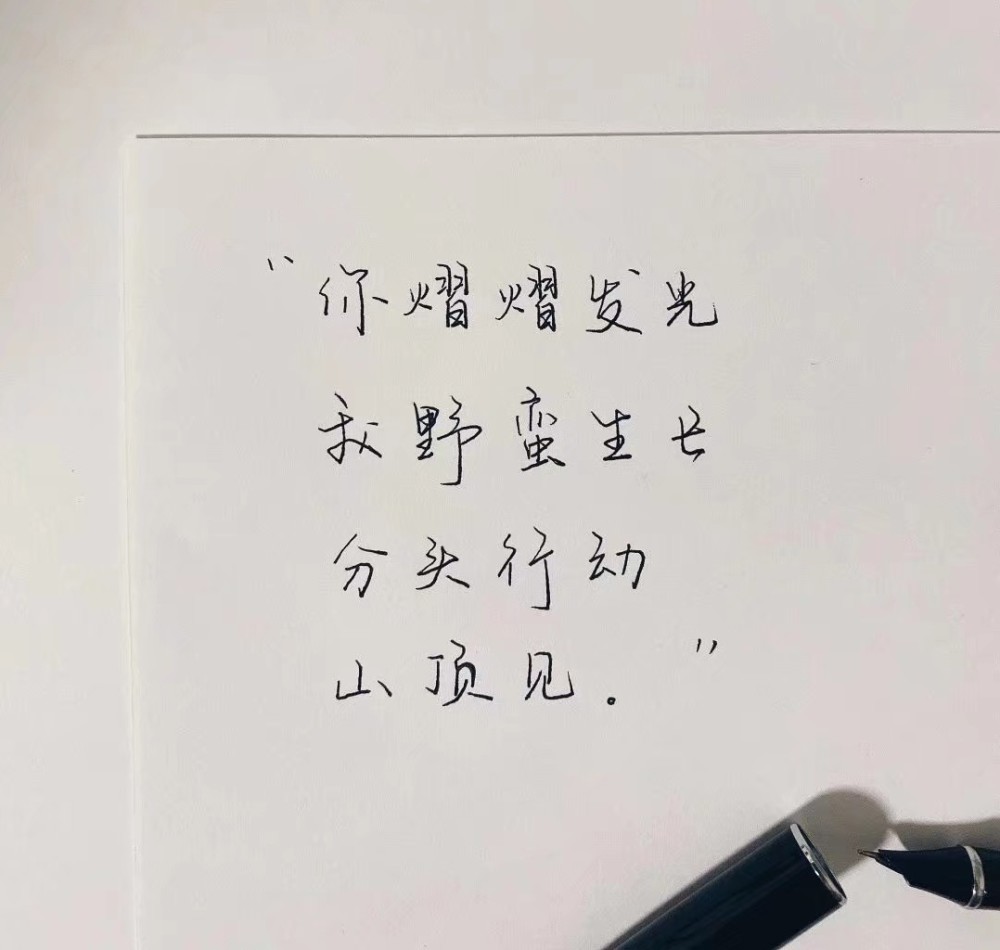 “你熠熠发光
我野蛮生长
分头行动
山顶见。”